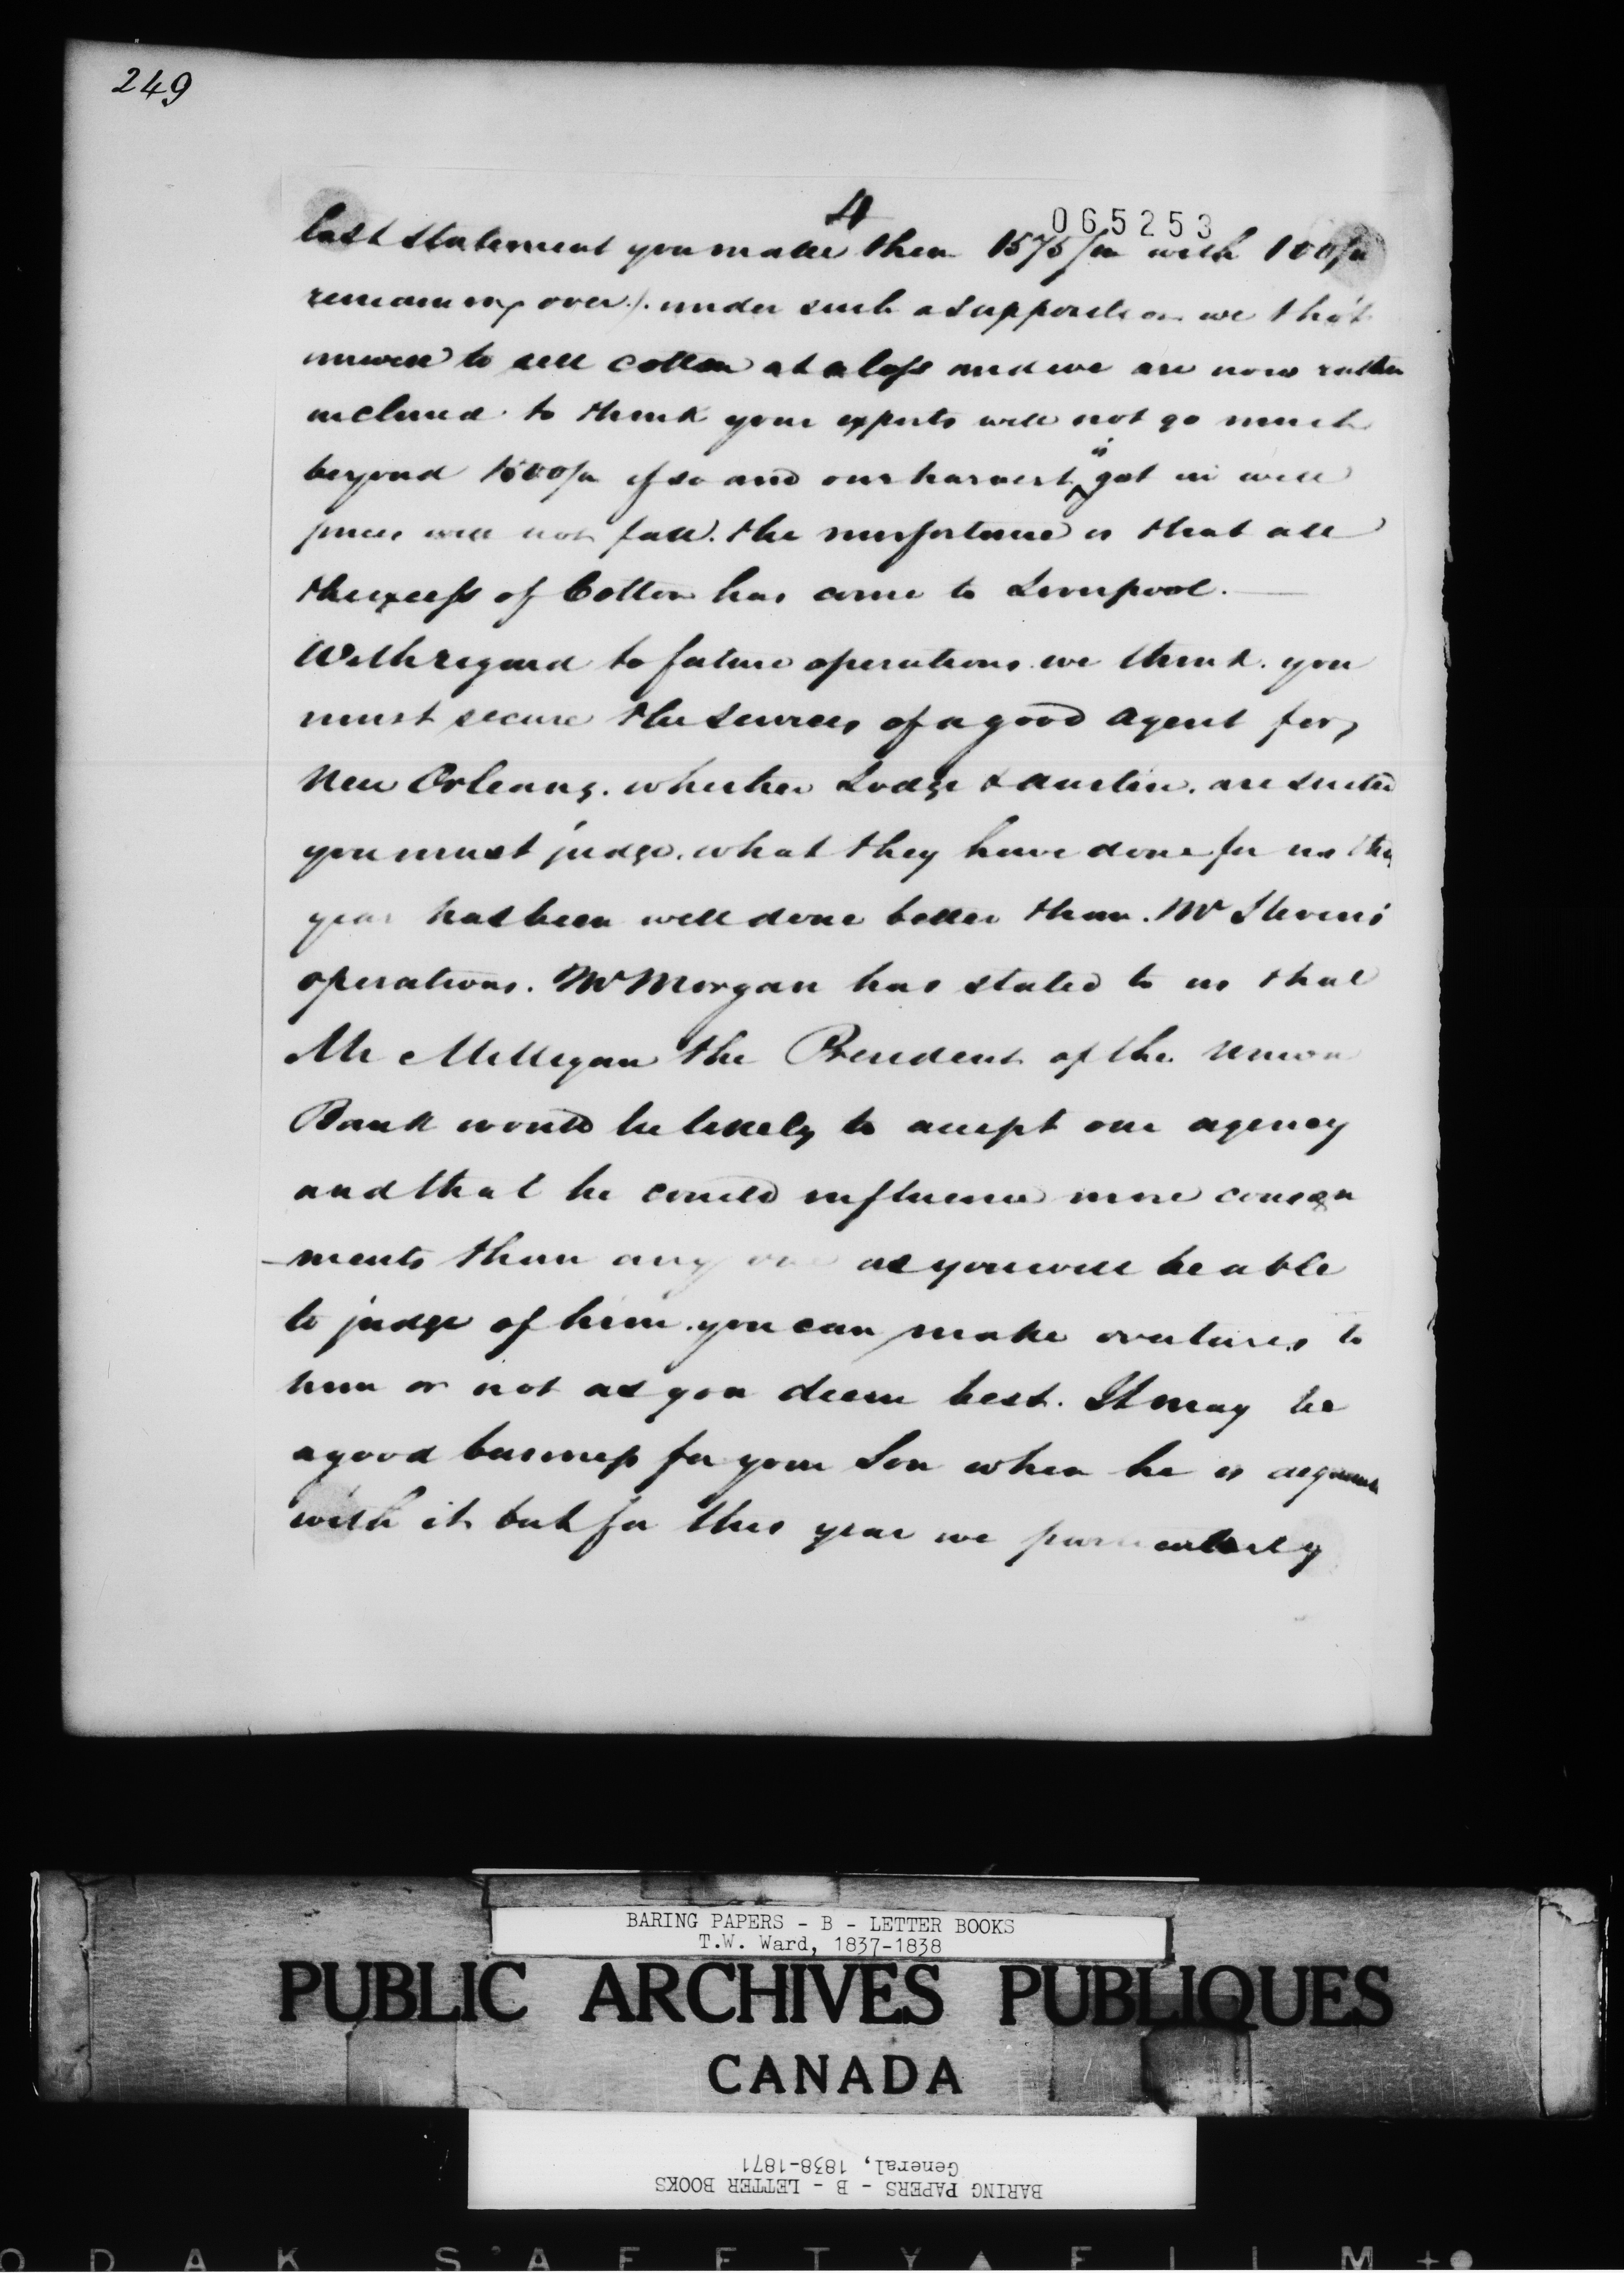 249
4
065253
last statement you make them 1575/m with 100/m
remaining over). under such a supposition we tho't
unwise to sell cotton at a loss and we are now rather
inclined to think your exports will not go much
beyond 1500/m if so and our harvest is got in well
prices will not fall. the misfortune is that all
the excess of Cotton has come to Liverpool.
With regard to future operations we think you
must secure the services of a good agent for
New Orleans. whether Lodge & Austin. are suited
you must judge. what they have done for us this
year has been well done better than Mr Stevens
operations. Mr Morgan has stated to us that
Mr Milligan the President of the Union
Bank would be likely to accept our agency
and that he could influence more consign
-ments than any one as you will be able
to judge of him. you can make overtures to
him or not as you deem best. It may be
a good business for your Son when he is
with it but for this year we particularly
BARING PAPERS - B - LETTER BOOKS
T.W. Ward, 1837-1838
PUBLIC ARCHIVES PUBLIQUES
CANADA
BARING PAPERS - B - LETTER BOOKS
General, 1838-1871
ODAK S'AFETY▲FILM+●